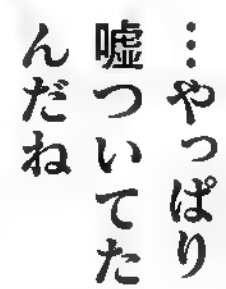 …やっぱり
嘘ついてた
んだね